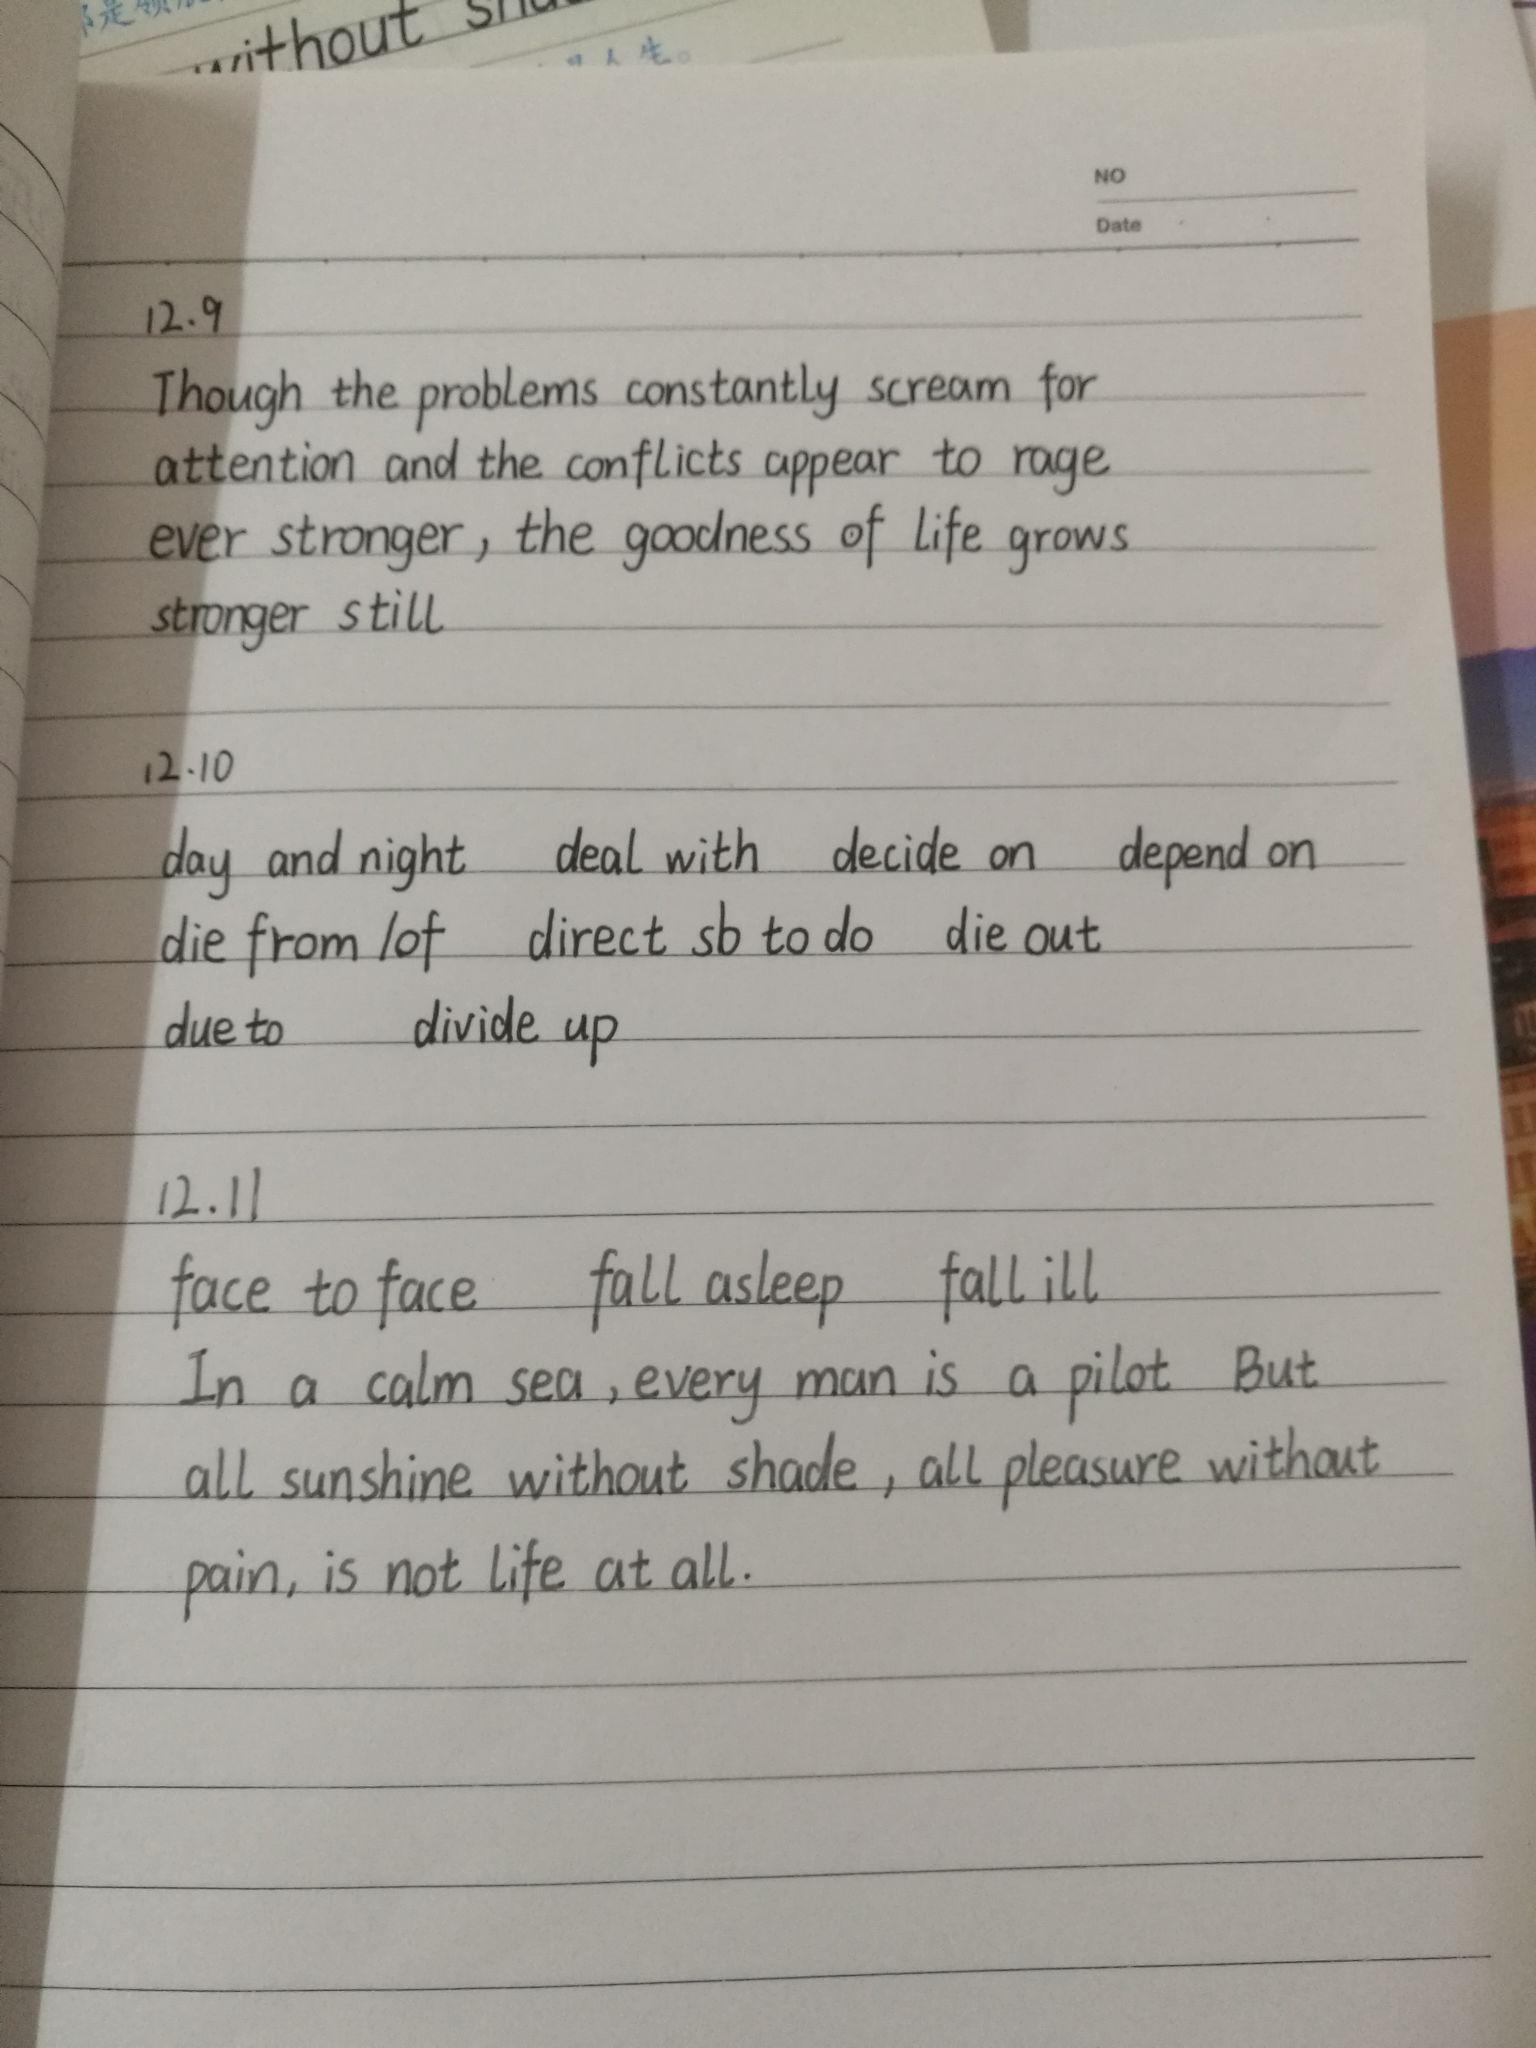 without
人生。
NO
Date
12.9
Though the problems constantly scream for
attention and the conflicts appear to rage
ever stronger, the goodness of life grows
stronger still
12.10
day and night deal with decide on depend on
die from/of direct sb to do die out
due to divide up
12.11
face to face fall asleep fall ill
In a calm sea, every man is a pilot But
all sunshine without shade, all pleasure without
pain, is not life at all.